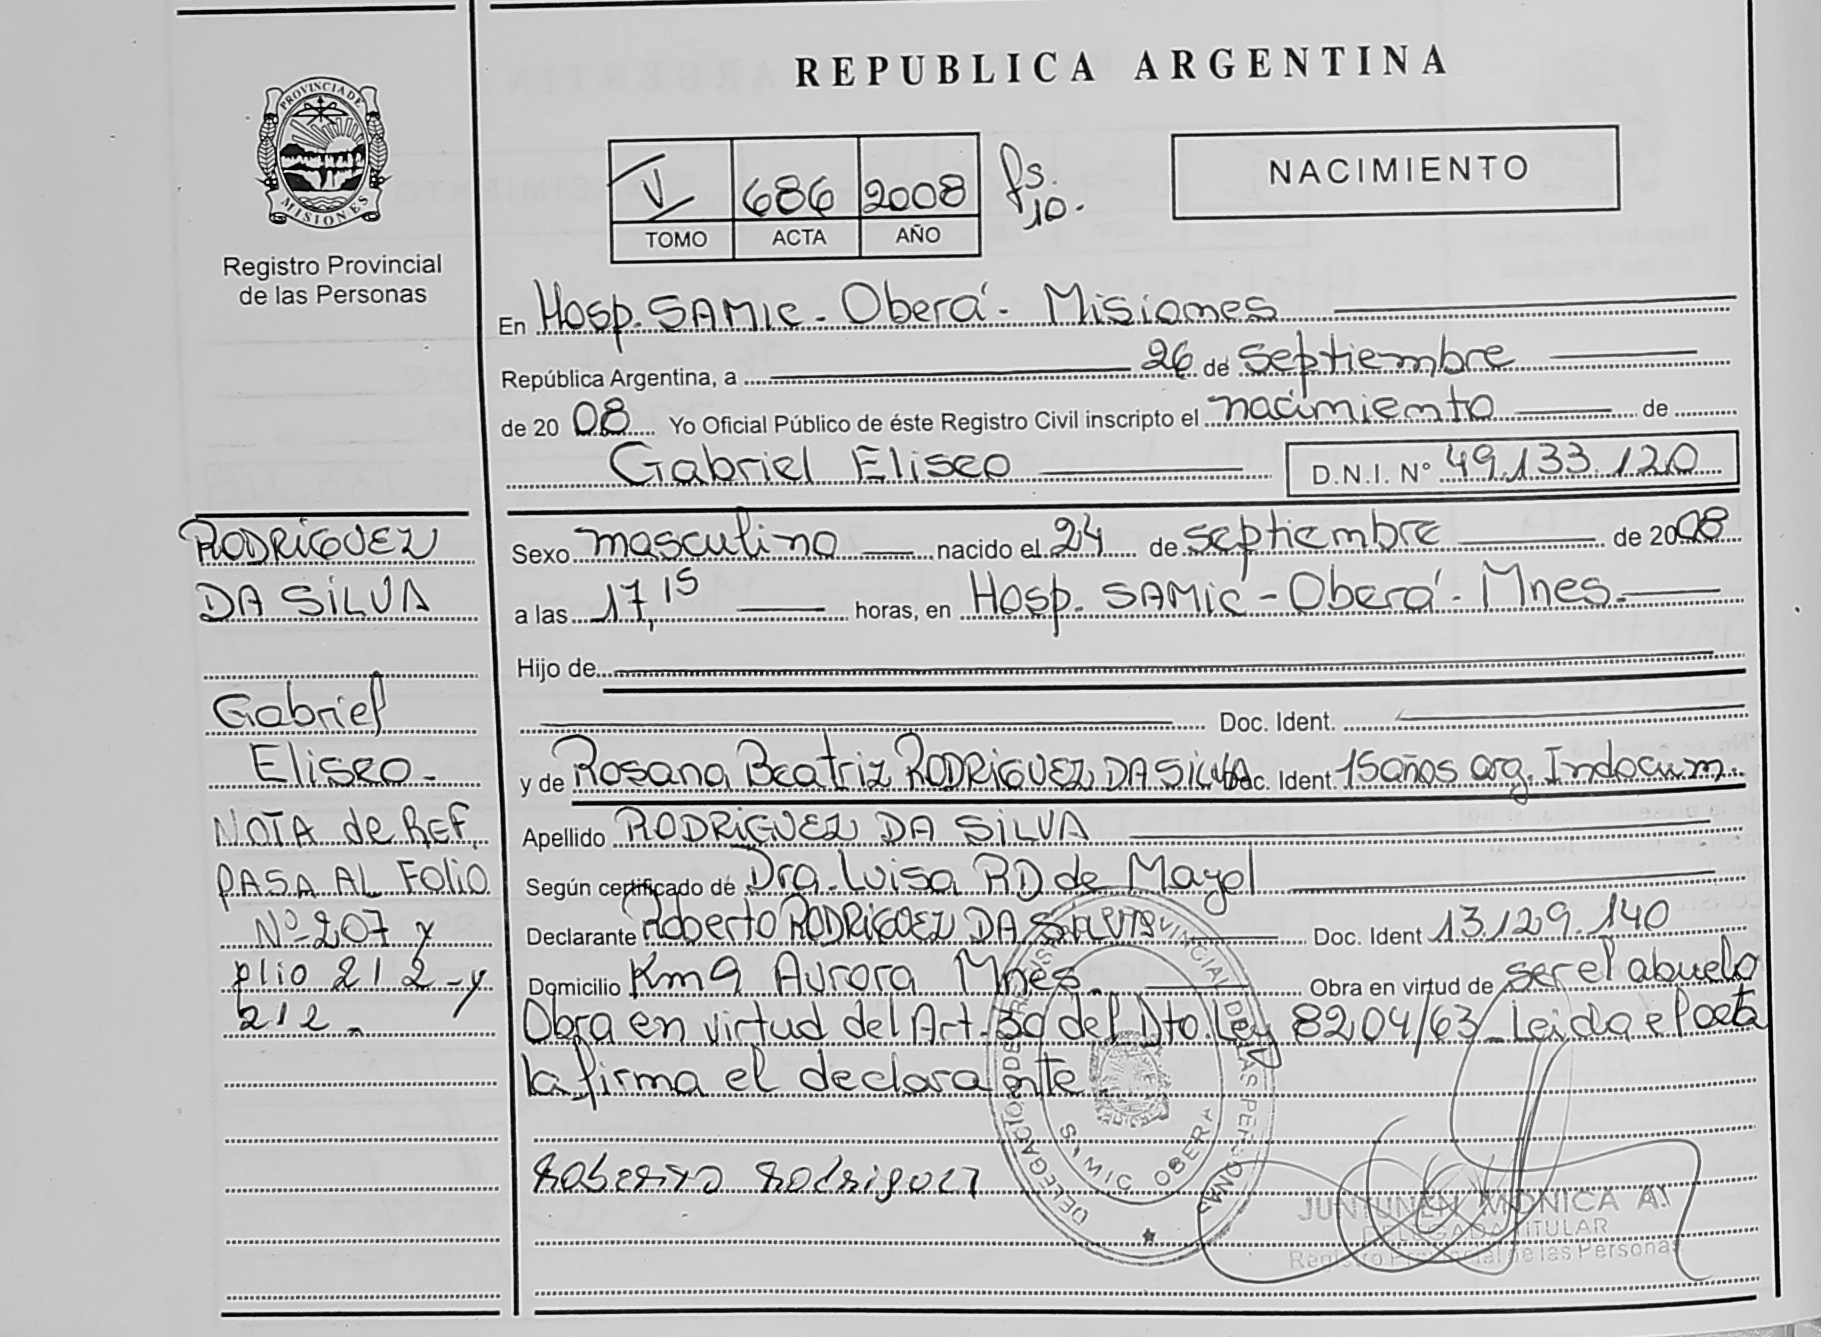 PROVINCIA DE
MISIONES
Registro Provincial
de las Personas
REPUBLICA ARGENTINA
V 686 2008 fs. 10.
TOMO ACTA AÑO
NACIMIENTO
En Hosp. SAMIC - Oberá - Misiones
República Argentina, a 26 de septiembre
de 20 08 Yo Oficial Público de éste Registro Civil inscripto el nacimiento de
Gabriel Eliseo D.N.I. N° 49.133.120
RODRÍGUEZ
DA SILVA
Gabriel
Eliseo-
NOTA de REF.
PASA AL FOLIO
Nº 207 y
212 - y
212 -
Sexo masculino nacido el 24 de septiembre de 2008
a las 17,15 horas, en Hosp. SAMIC - Oberá - Mnes.
Hijo de
Doc. Ident.
y de Rosana Beatriz RODRÍGUEZ DA SILVA Doc. Ident 15 años arg. Indocum.
Apellido RODRÍGUEZ DA SILVA
Según certificado de Dra. Luisa RD de Mayol
Declarante Roberto RODRÍGUEZ DA SILVA Doc. Ident 13.129.140
Domicilio Km 9 Aurora Mnes. Obra en virtud de ser el abuelo
Obra en virtud del Art. 30 del Dto. Ley 8204/63 - Leida el acta
la firma el declarante
Roberto Rodriguez
SAMIC OBERA
JUNTUNEN MONICA A.
DELEGADA TITULAR
Registro Provincial de las Personas